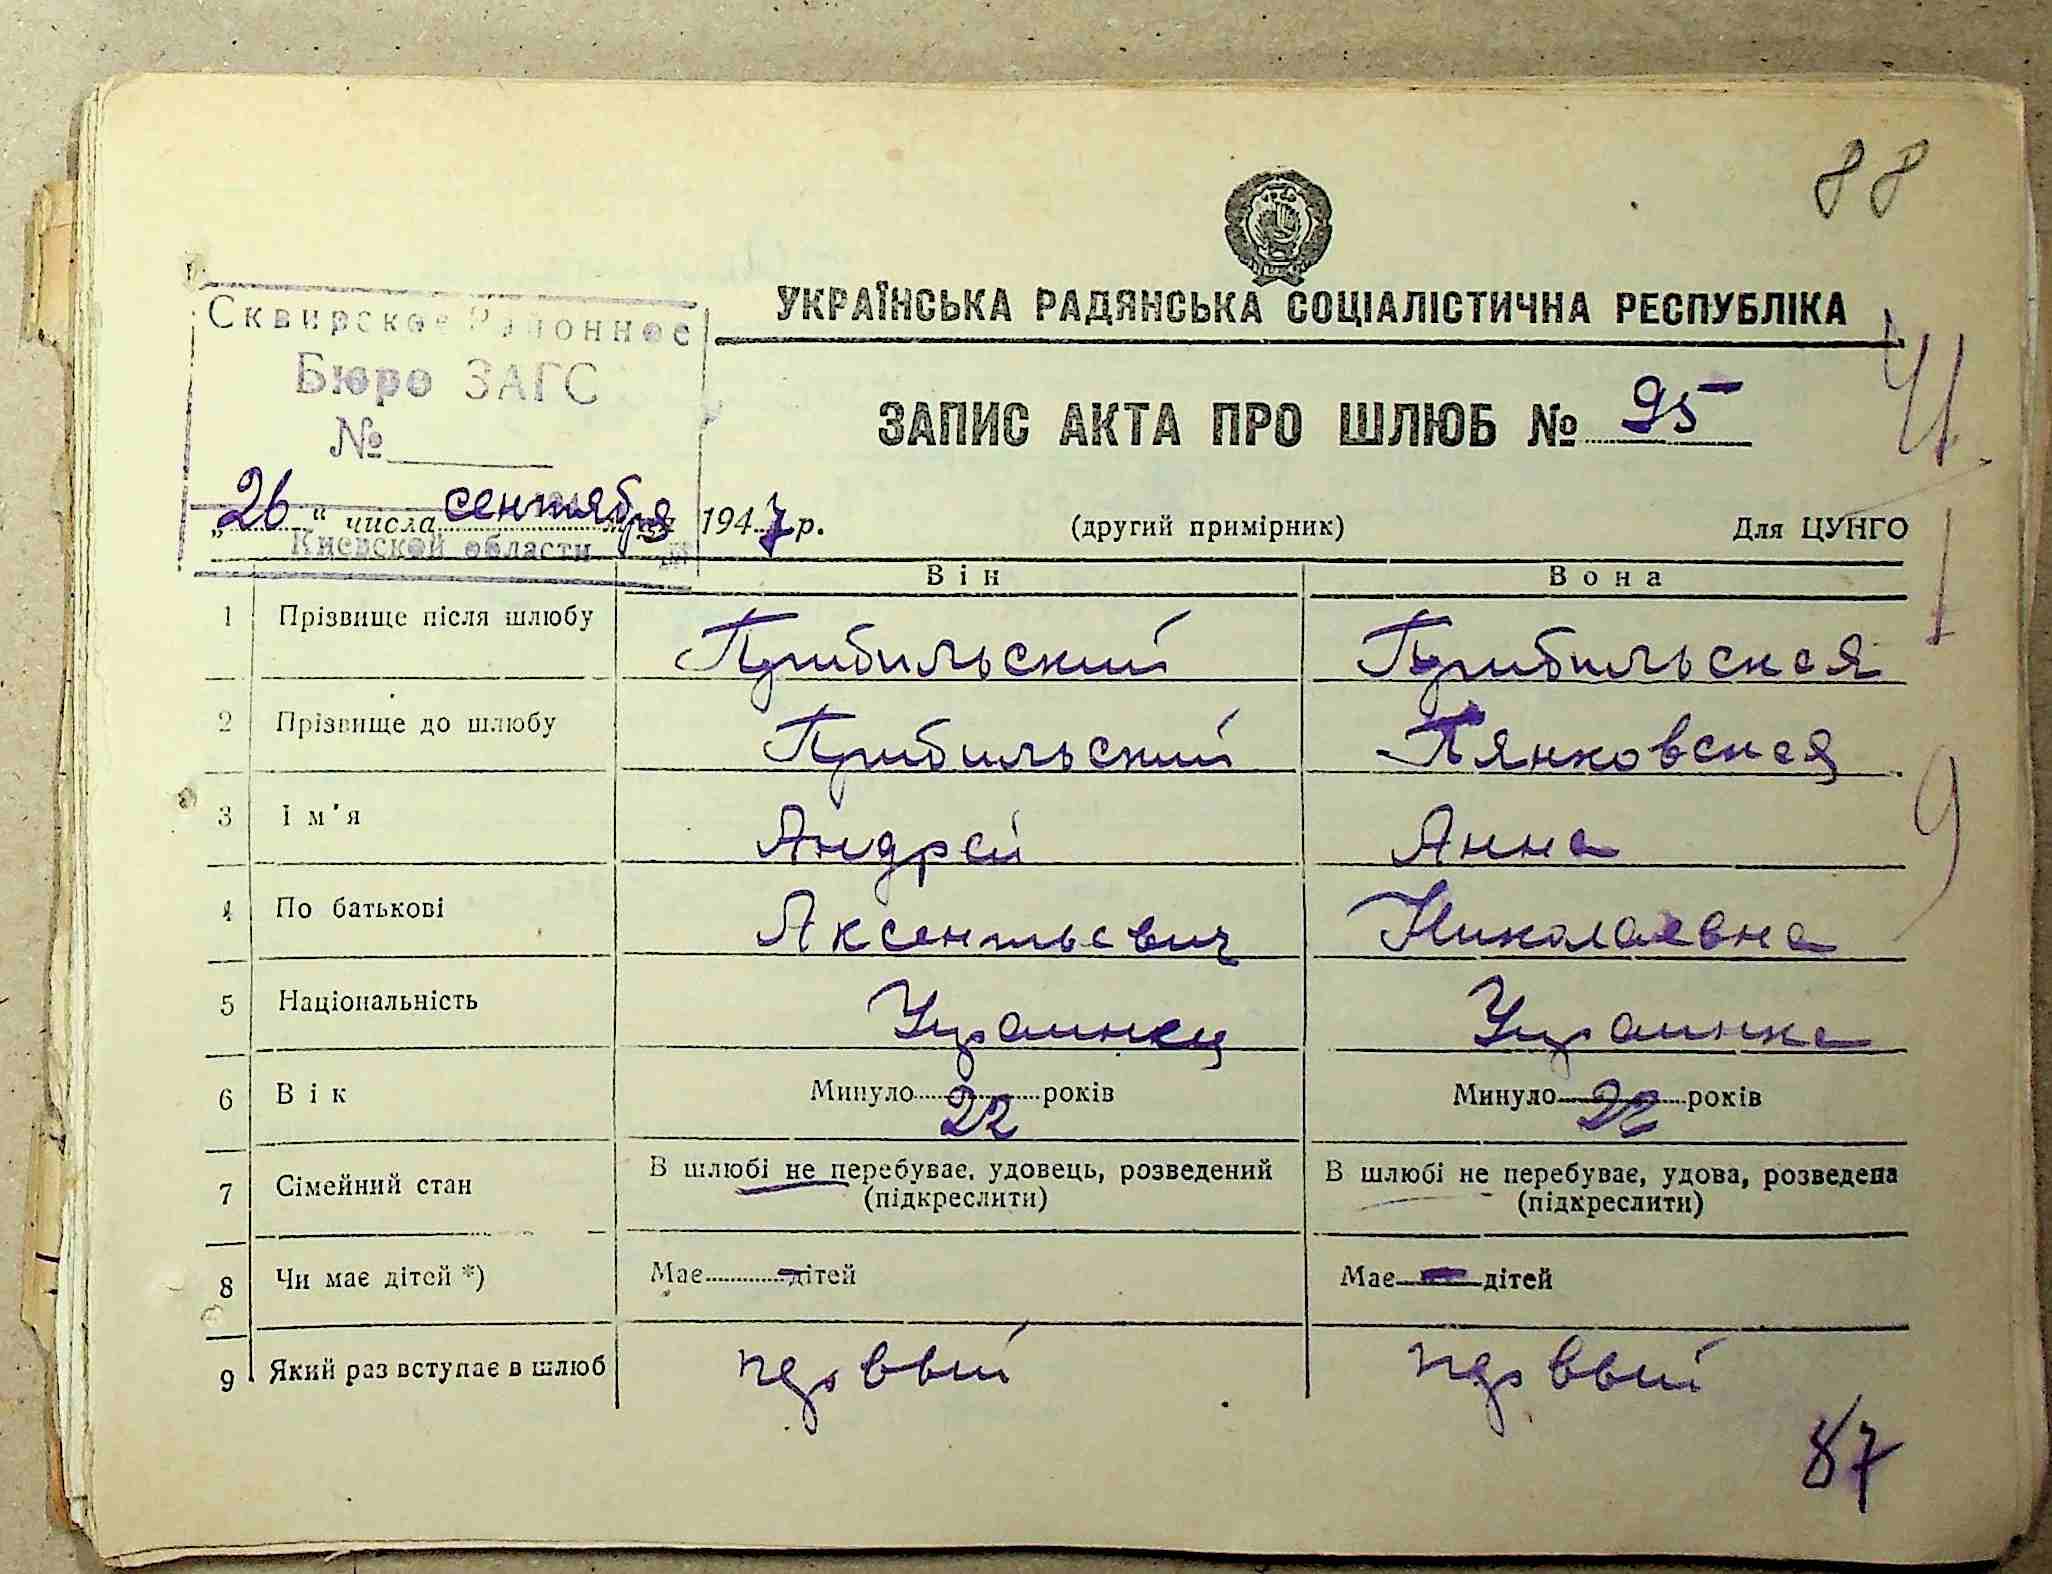 88
Сквирское Районное
Бюро ЗАГС
№
УКРАЇНСЬКА РАДЯНСЬКА СОЦІАЛІСТИЧНА РЕСПУБЛІКА
ЗАПИС АКТА ПРО ШЛЮБ № 95
„26“ числа сентября 1947 р. (другий примірник) Для ЦУНГО
Киевской области
Він Вона
1 Прізвище після шлюбу Прибильский Прибильская
2 Прізвище до шлюбу Прибильский Пянковская
3 Ім'я Андрей Анна
9
4 По батькові Аксентьевич Николаевна
5 Національність Украинец Украинка
6 Вік Минуло 22 років Минуло 22 років
7 Сімейний стан В шлюбі не перебуває, удовець, розведений (підкреслити) В шлюбі не перебуває, удова, розведена (підкреслити)
8 Чи має дітей *) Має - дітей Має - дітей
9 Який раз вступає в шлюб первый первый
87